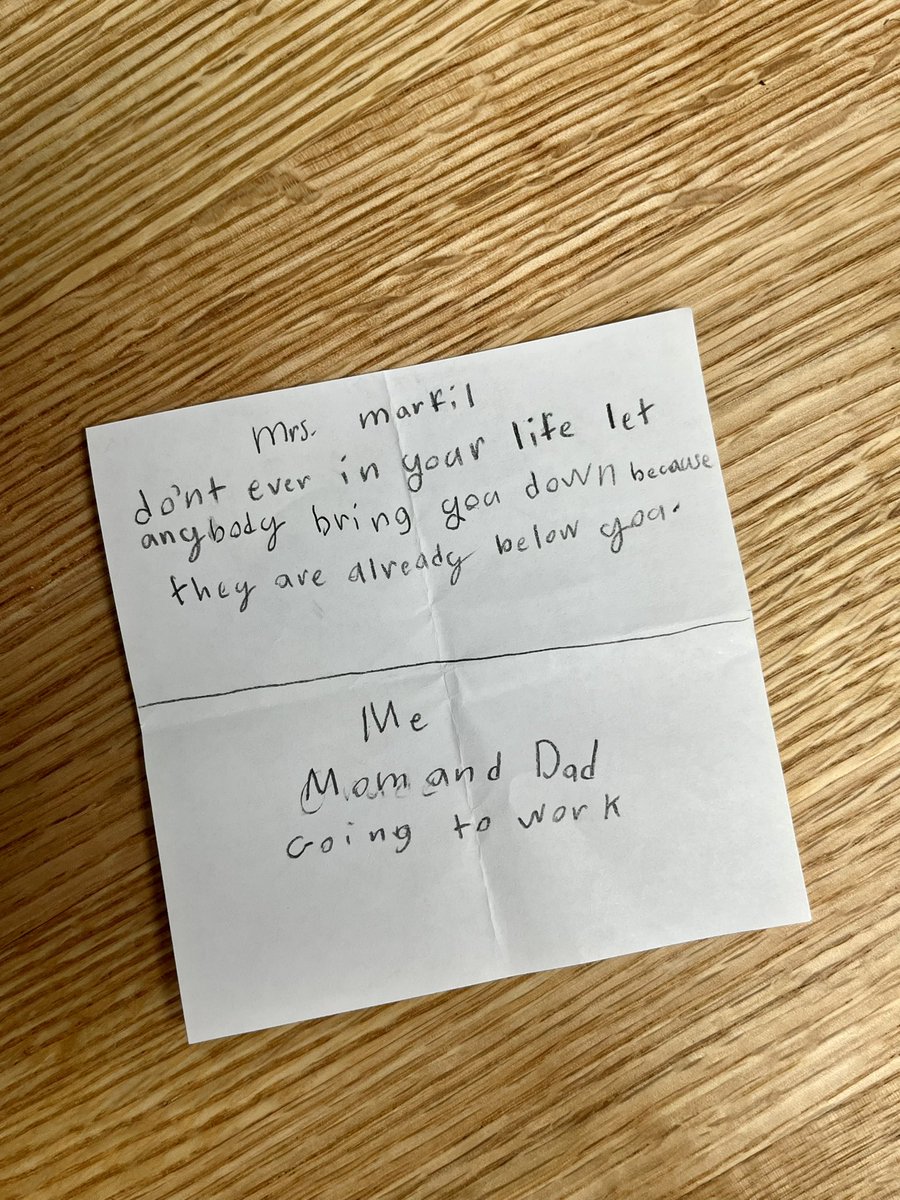 Mrs. markil
do'nt ever in your life let
anybody bring you down because
they are already below you.
Me
Mom and Dad
Going to work